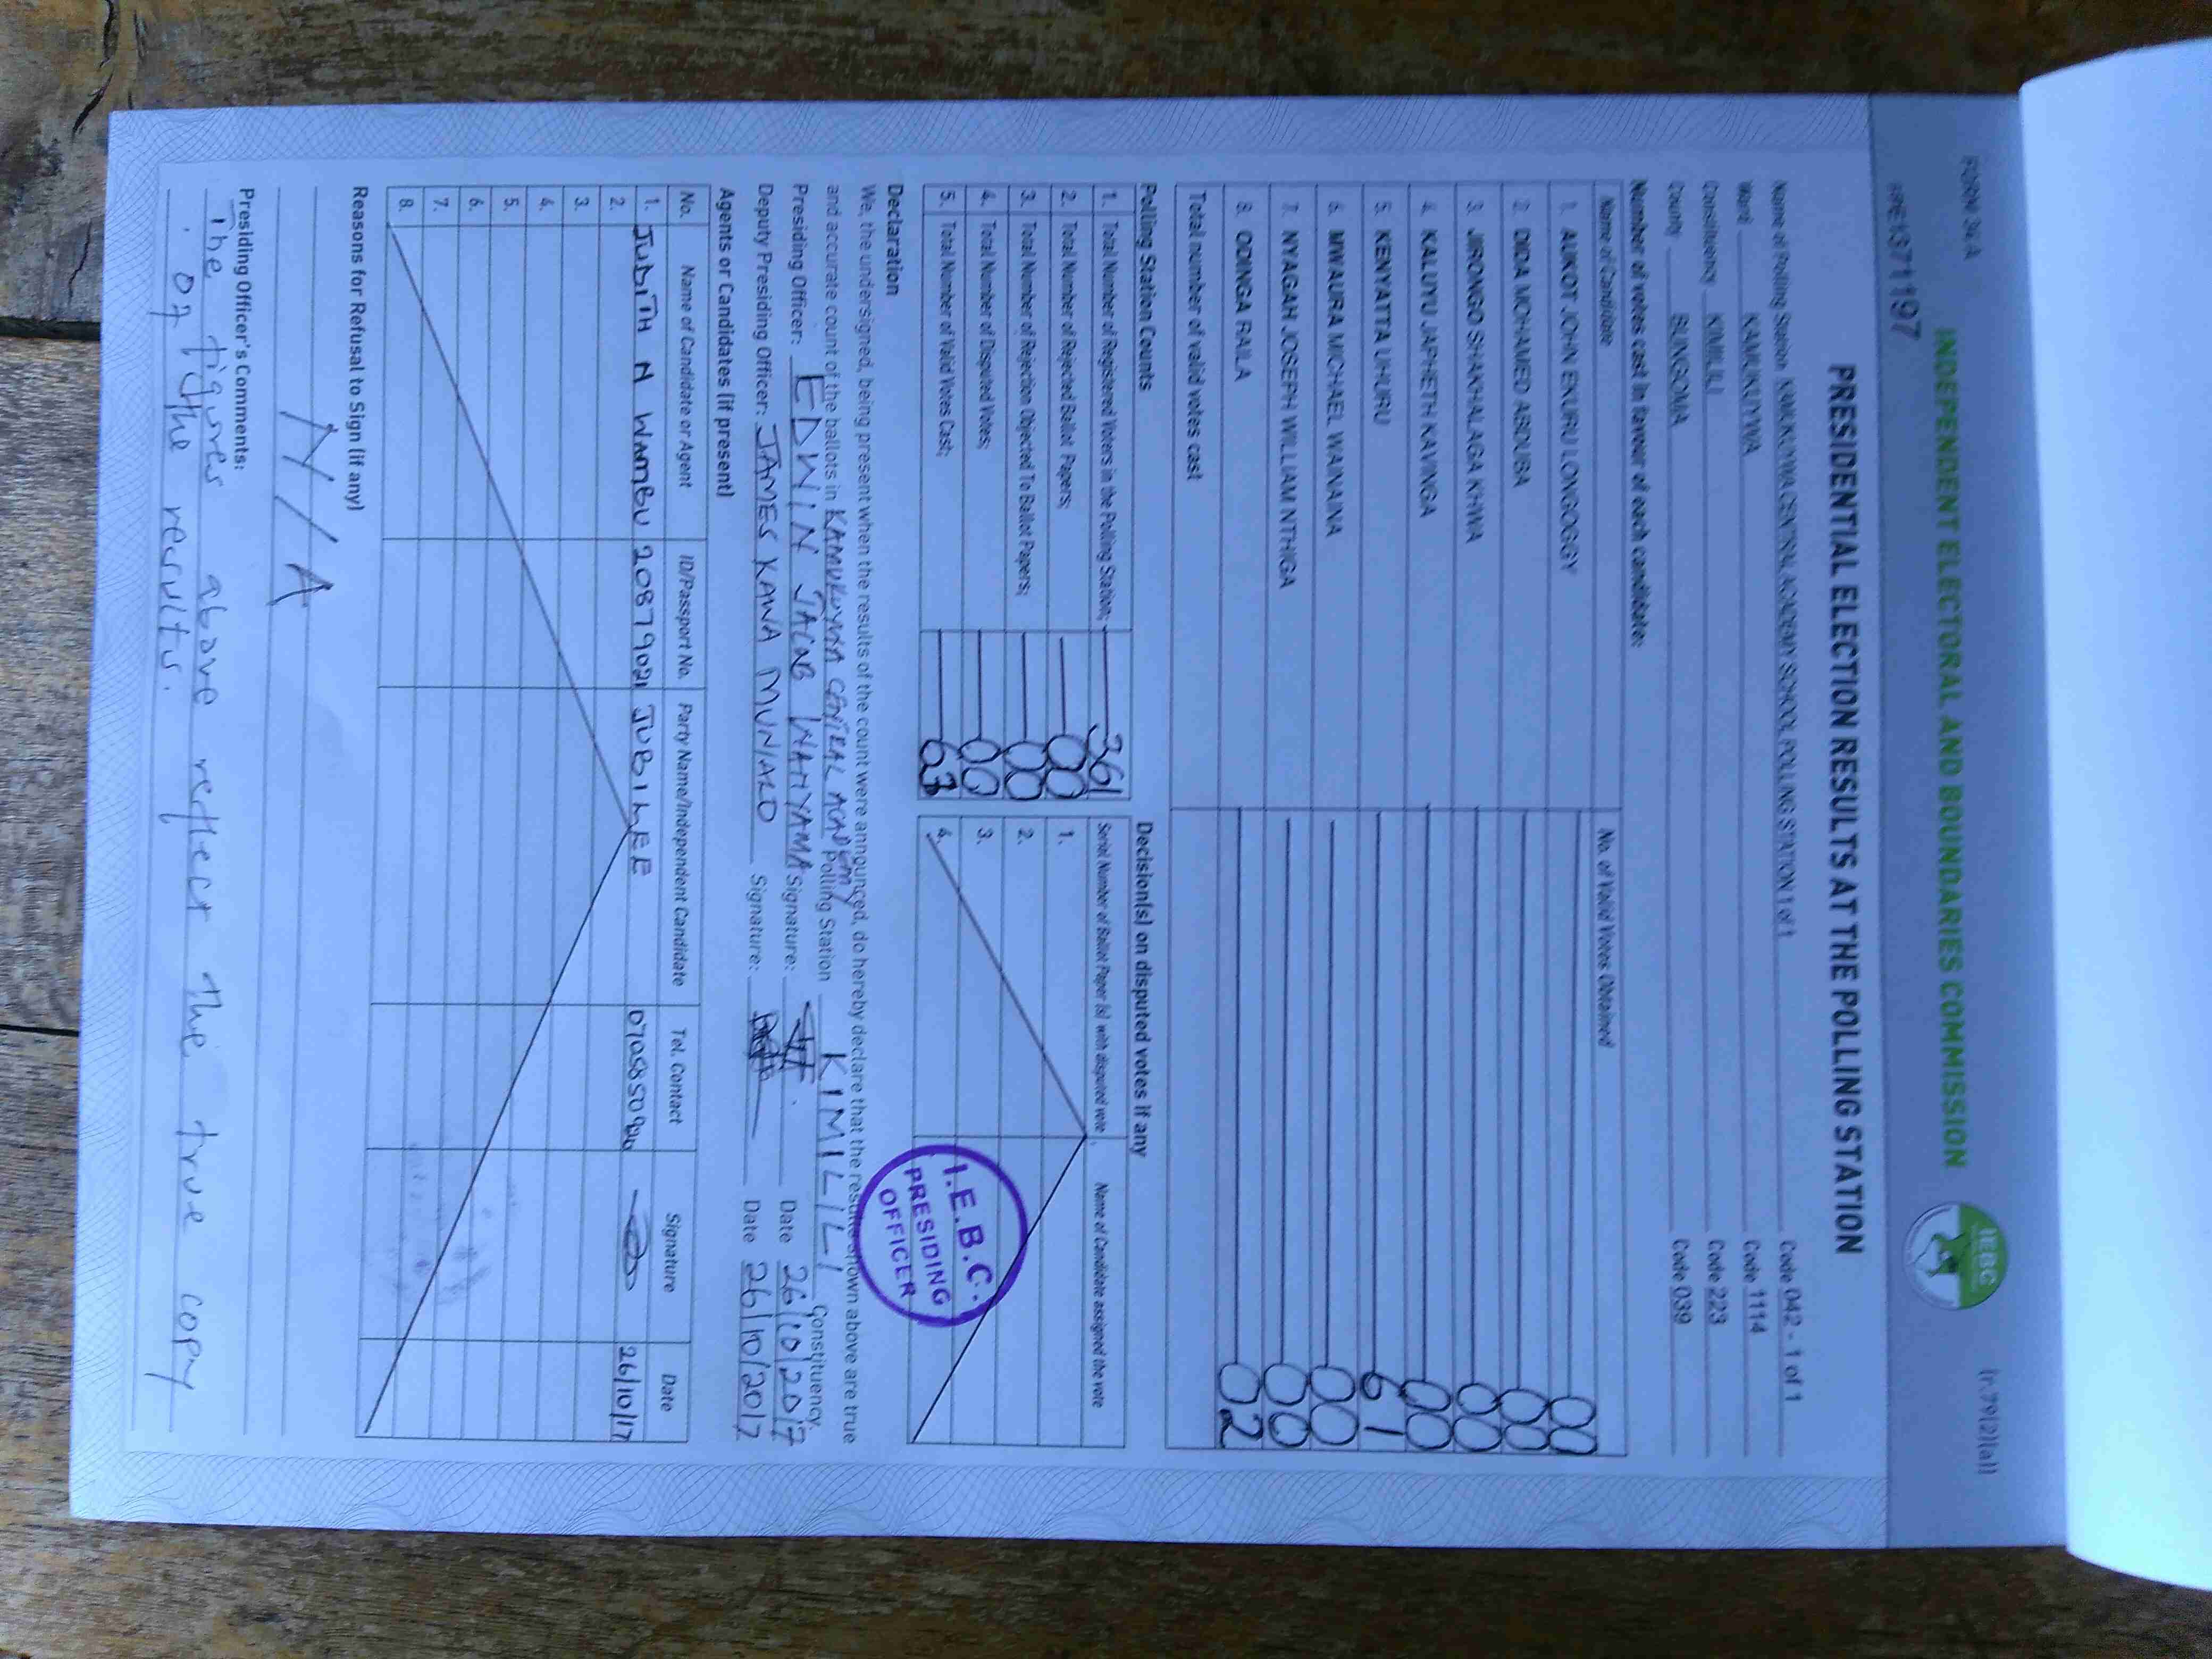 FORM 34 A
(r.79(2)(a))
INDEPENDENT ELECTORAL AND BOUNDARIES COMMISSION
IEBC
PRESIDENTIAL ELECTION RESULTS AT THE POLLING STATION
Name of Polling Station KAMUKUYWA CENTRAL ACADEMY SCHOOL POLLING STATION 1 of 1 Code 042 - 1 of 1
Ward KAMUKUYWA Code 1114
Constituency KIMILILI Code 223
County BUNGOMA Code 039
Number of votes cast in favour of each candidate:
Name of Candidate No. of Valid Votes Obtained
1. AUKOT JOHN EKURU LONGOGGY 00
2. DIDA MOHAMED ABDUBA 00
3. JIRONGO SHAKHALAGA KHWA 00
4. KALUYU JAPHETH KAVINGA 00
5. KENYATTA UHURU 61
6. MWAURA MICHAEL WAINAINA 00
7. NYAGAH JOSEPH WILLIAM NTHIGA 00
8. ODINGA RAILA 02
Total number of valid votes cast
Polling Station Counts
1. Total Number of Registered Voters in the Polling Station; 361
2. Total Number of Rejected Ballot Papers; 00
3. Total Number of Rejection Objected To Ballot Papers; 00
4. Total Number of Disputed Votes; 00
5. Total Number of Valid Votes Cast; 63
Decision(s) on disputed votes if any
Serial Number of Ballot Paper (s) with disputed vote Name of Candidate assigned the vote
1.
2.
3.
4.
I.E.B.C.
PRESIDING
OFFICER
Declaration
We, the undersigned, being present when the results of the count were announced, do hereby declare that the results shown above are true
and accurate count of the ballots in KAMUKUYWA CENTRAL ACADEMY Polling Station KIMILILI Constituency.
Presiding Officer: EDWIN JACOB WATIYAMA Signature: Date 26/10/2017
Deputy Presiding Officer: JAMES KAWA MUNIALO Signature: Date 26/10/2017
Agents or Candidates (if present)
No. Name of Candidate or Agent ID/Passport No. Party Name/Independent Candidate Tel. Contact Signature Date
1. JUDITH N WAMBU 20879021 JUBILEE 26/10/17
2.
3.
4.
5.
6.
7.
8.
Reasons for Refusal to Sign (if any)
N/A
Presiding Officer's Comments:
The figures above reflect the true copy
of the results.